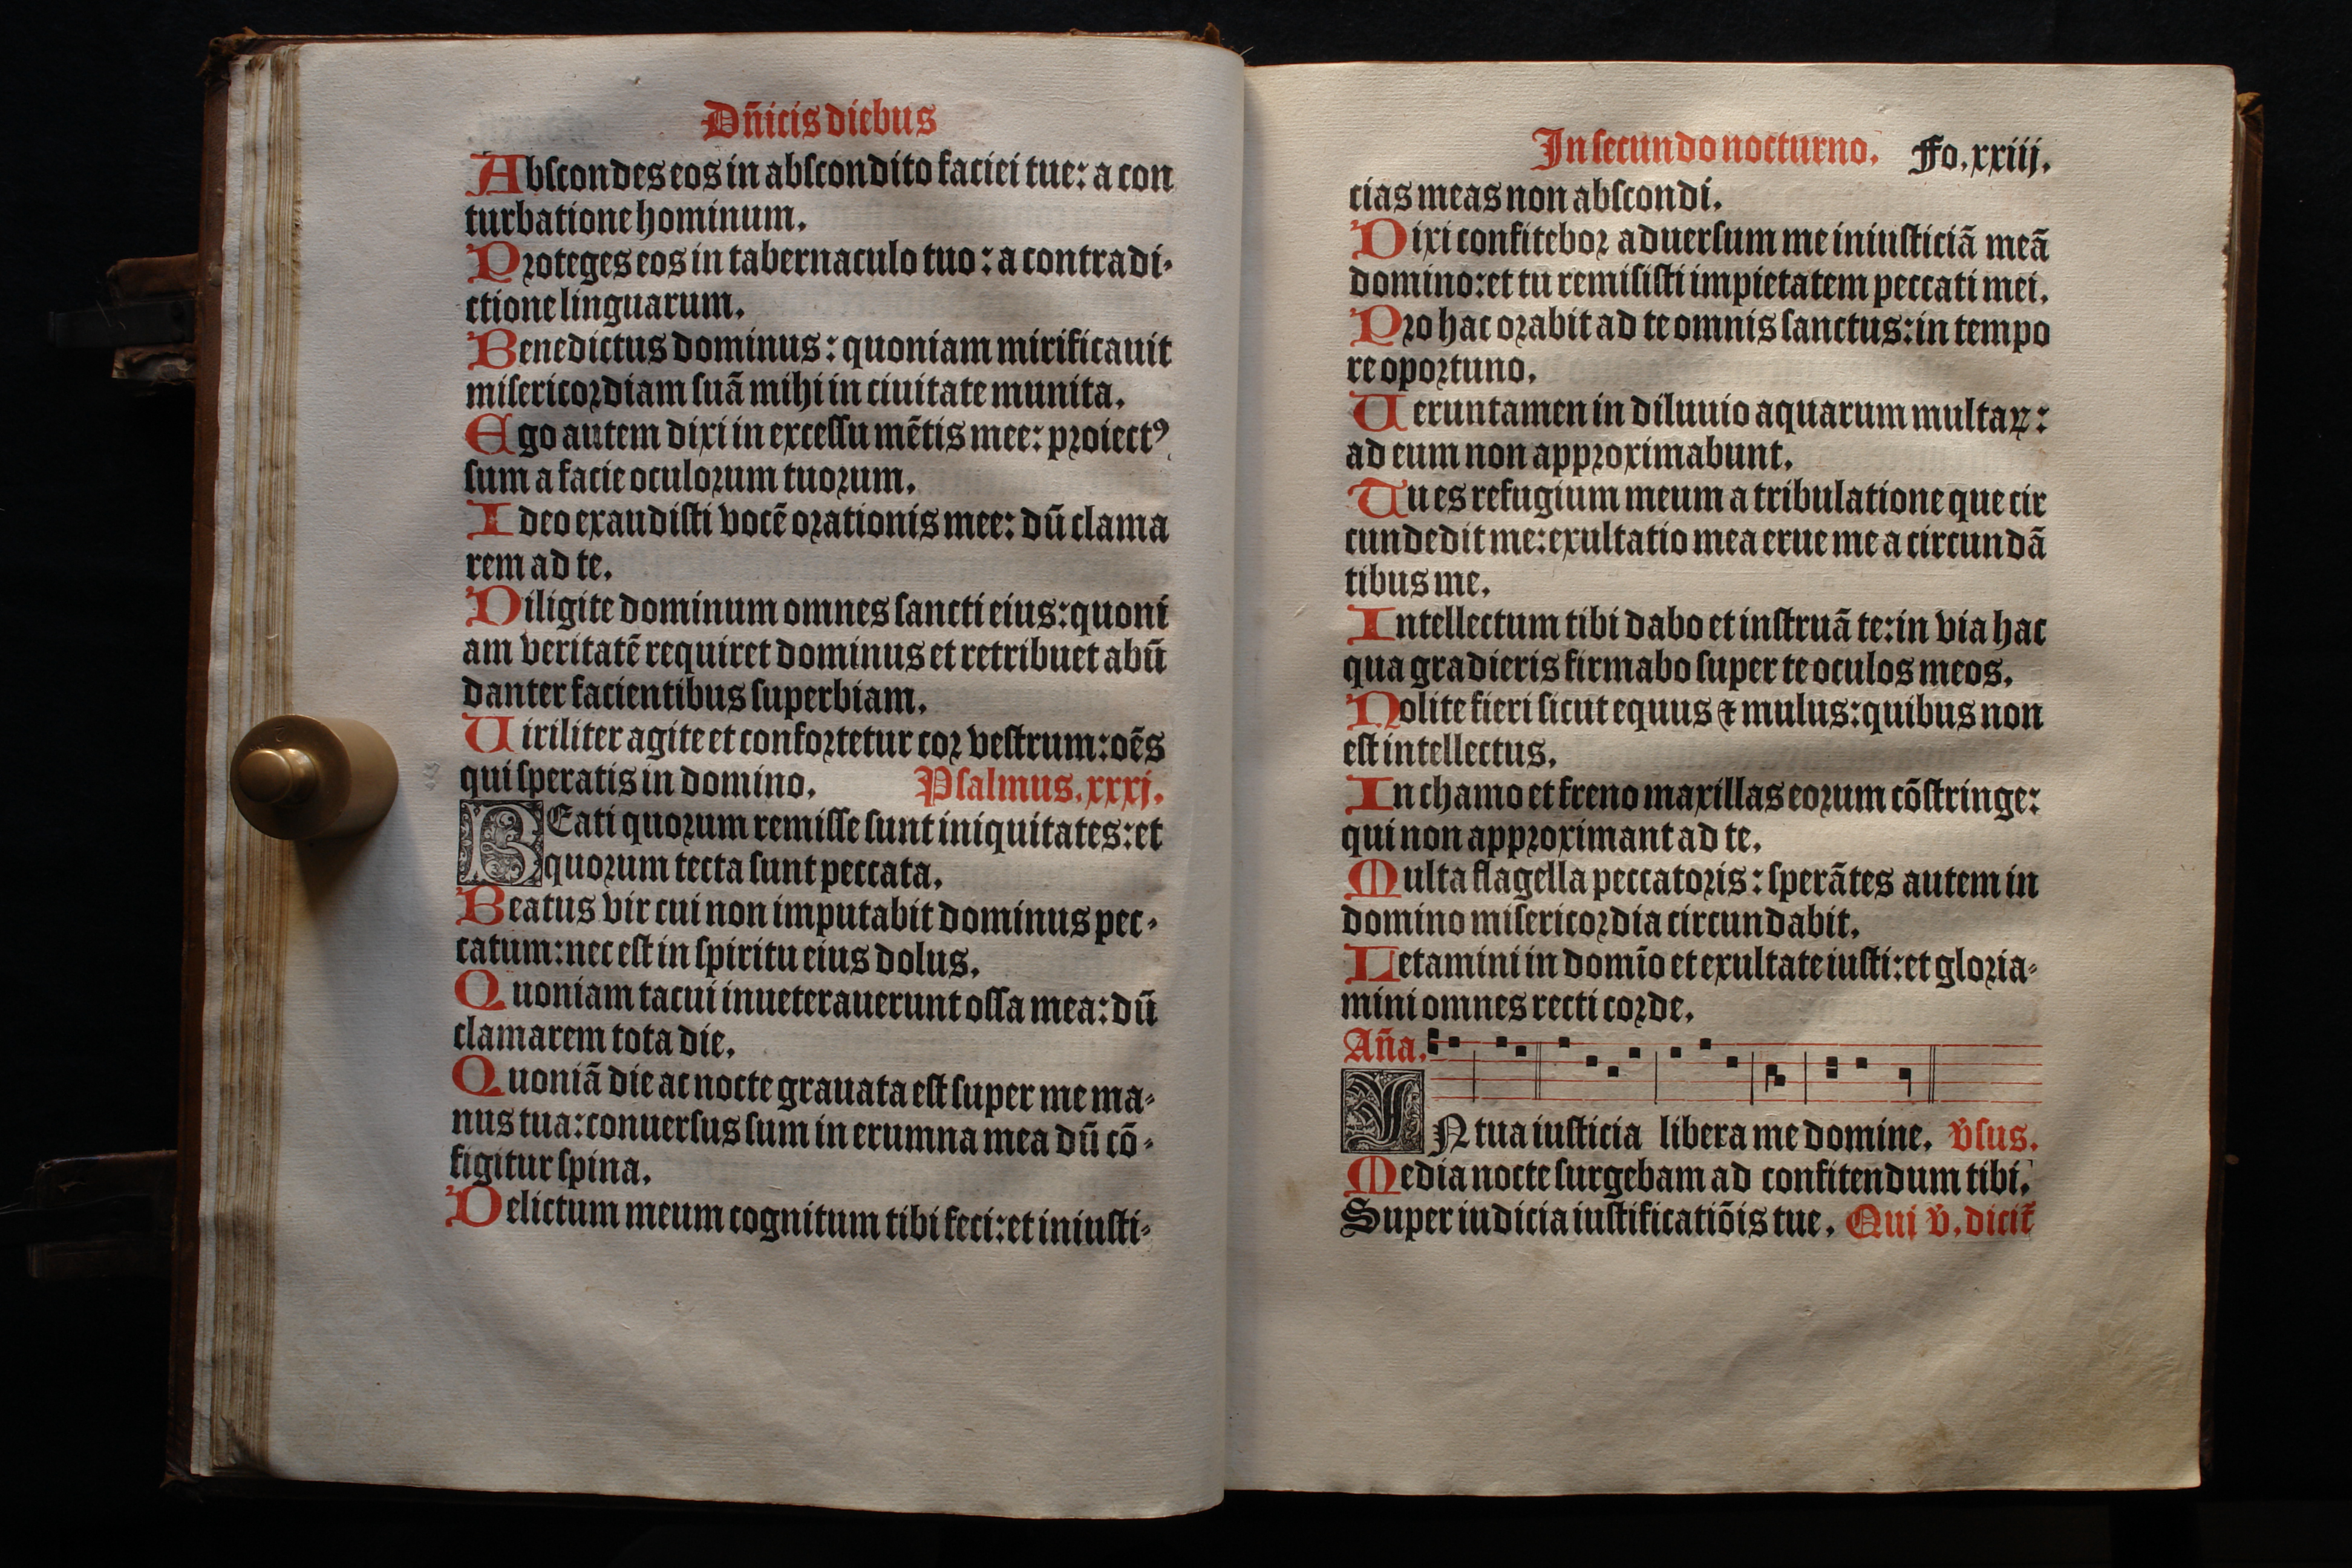 Dñicis diebus
Abscondes eos in abscondito faciei tue: a con
turbatione hominum.
Proteges eos in tabernaculo tuo: a contradi-
ctione linguarum.
Benedictus dominus: quoniam mirificauit
misericordiam suā mihi in ciuitate munita.
Ego autem dixi in excessu mētis mee: proiectꝰ
sum a facie oculorum tuorum.
Ideo exaudisti vocē orationis mee: dū clama
rem ad te.
Diligite dominum omnes sancti eius: quoni
am veritatē requiret dominus et retribuet abū
danter facientibus superbiam.
Uiriliter agite et confortetur cor vestrum: oēs
qui speratis in domino. Psalmus. xxxj.
BEati quorum remisse sunt iniquitates: et
quorum tecta sunt peccata.
Beatus vir cui non imputabit dominus pec-
catum: nec est in spiritu eius dolus.
Quoniam tacui inueterauerunt ossa mea: dū
clamarem tota die.
Quoniā die ac nocte grauata est super me ma-
nus tua: conuersus sum in erumna mea dū cō-
figitur spina.
Delictum meum cognitum tibi feci: et iniusti-
In secundo nocturno. Fo. xxiij.
cias meas non abscondi.
Dixi confitebor aduersum me iniusticiā meā
domino: et tu remisisti impietatem peccati mei.
Pro hac orabit ad te omnis sanctus: in tempo
re oportuno.
Ueruntamen in diluuio aquarum multaꝝ:
ad eum non approximabunt.
Tu es refugium meum a tribulatione que cir
cundedit me: exultatio mea erue me a circundā
tibus me.
Intellectum tibi dabo et instruā te: in via hac
qua gradieris firmabo super te oculos meos.
Nolite fieri sicut equus ⁊ mulus: quibus non
est intellectus.
In chamo et freno maxillas eorum cōstringe:
qui non approximant ad te.
Multa flagella peccatoris: sperātes autem in
domino misericordia circundabit.
Letamini in domīo et exultate iusti: et gloria-
mini omnes recti corde.
Aña.
IN tua iusticia libera me domine. v̄sus.
Media nocte surgebam ad confitendum tibi.
Super iudicia iustificatiōis tue. Qui v̄. dicit̄